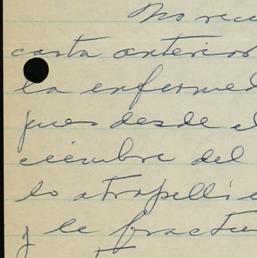 No rece
carta anterior
la enfermed
pues desde el
ciembre del
lo atropelló
y le fractu